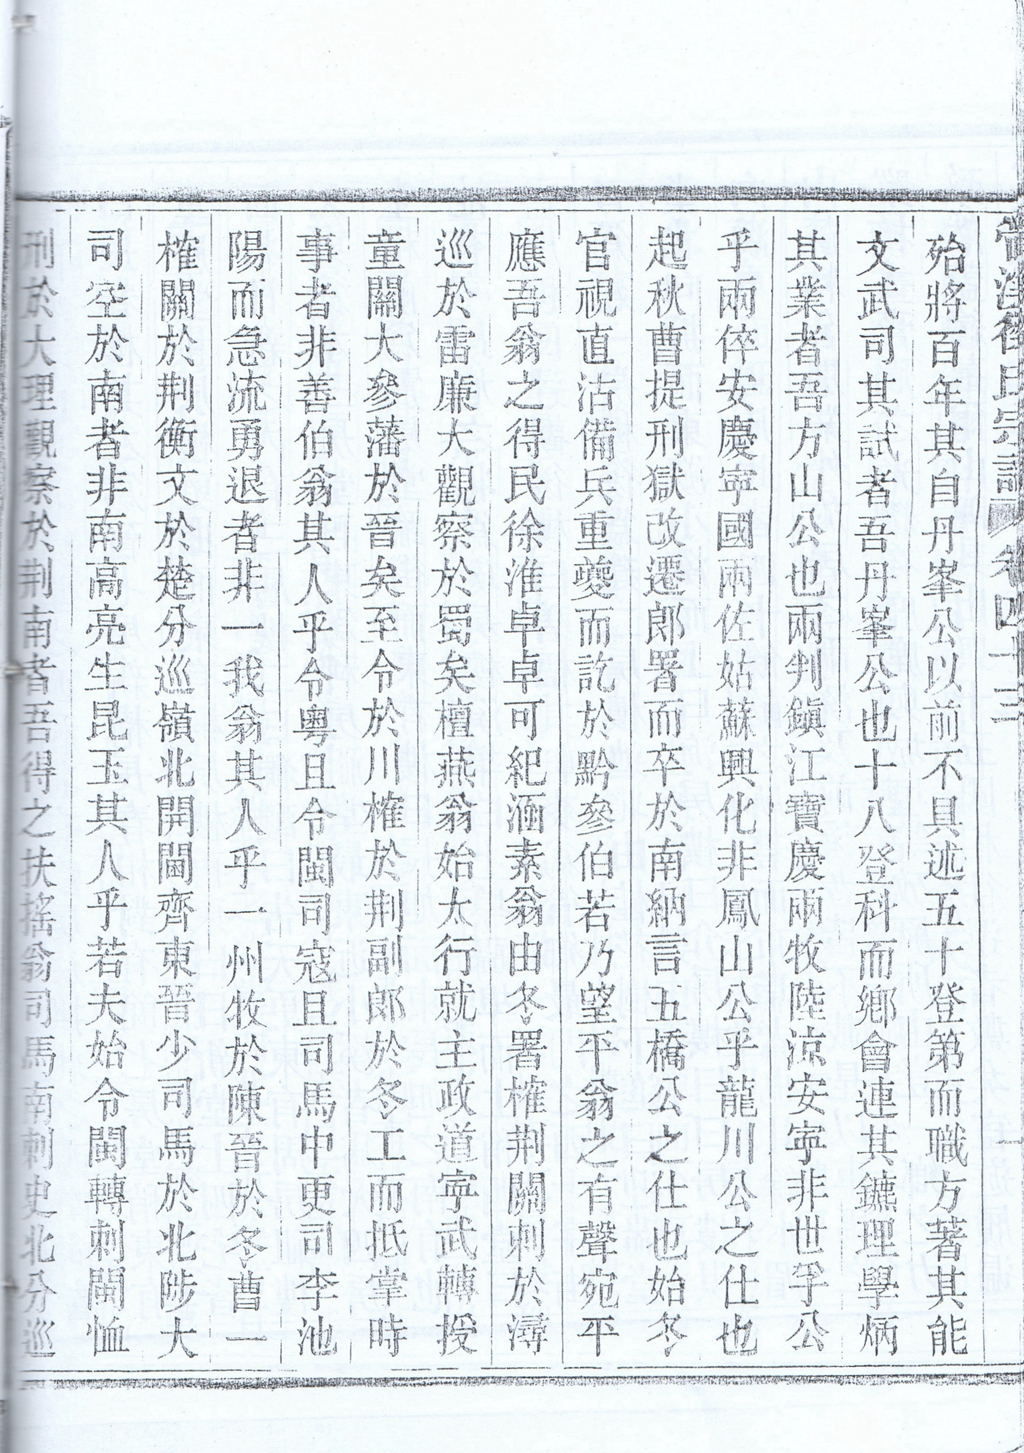 氏宗譜 卷四十三
殆將百年其自丹峯公以前不具述五十登第而職方著其能
文武司其試者吾丹峯公也十八登科而鄉會連其鑣理學炳
其業者吾方山公也兩判鎮江寶慶兩牧陸涼安寧非世孚公
乎兩倅安慶寧國兩佐姑蘇興化非鳳山公乎龍川公之仕也
起秋曹提刑獄改遷郎署而卒於南納言五橋公之仕也始冬
官視直沽備兵重夔而訖於黔參伯若乃望平翁之有聲宛平
應吾翁之得民徐淮卓卓可紀涵素翁由冬署榷荆關刺於潯
巡於雷廉大觀察於蜀矣檀燕翁始太行就主政道寧武轉授
童關大參藩於晉矣至令於川榷於荆副郎於冬工而抵掌時
事者非善伯翁其人乎令粵且令閩司寇且司馬中更司李池
陽而急流勇退者非一我翁其人乎一州牧於陳晉於冬曹一
榷關於荆衡文於楚分巡嶺北開閫齊東晉少司馬於北陟大
司空於南者非南高亮生昆玉其人乎若夫始令閩轉刺閩恤
刑於大理觀察於荆南者吾得之扶搖翁司馬南刺史北分巡